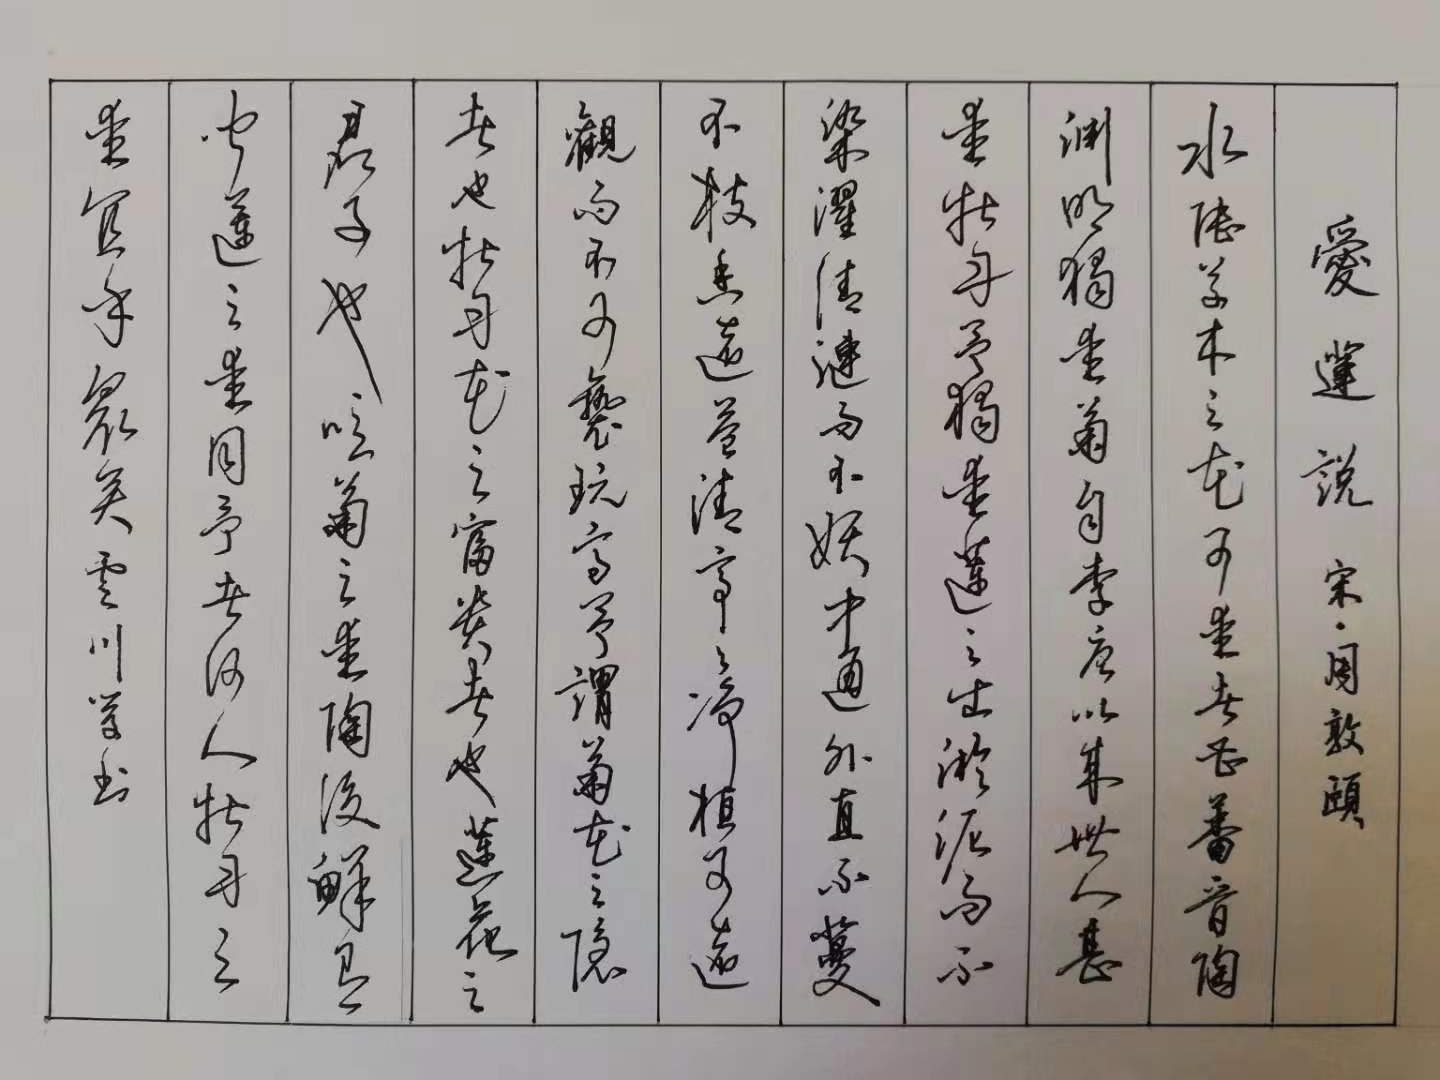 愛蓮説 宋·周敦頤
水陸草木之花可愛者甚蕃晋陶
渊明獨愛菊自李唐以来世人甚
愛牡丹予獨愛蓮之出淤泥而不
染濯清漣而不妖中通外直不蔓
不枝香遠益清亭亭净植可遠
觀而不可褻玩焉予謂菊花之隐
者也牡丹花之富贵者也蓮花之
君子也噫菊之愛陶後鲜有
闻蓮之愛同予者何人牡丹之
愛宜乎衆矣雲川学书